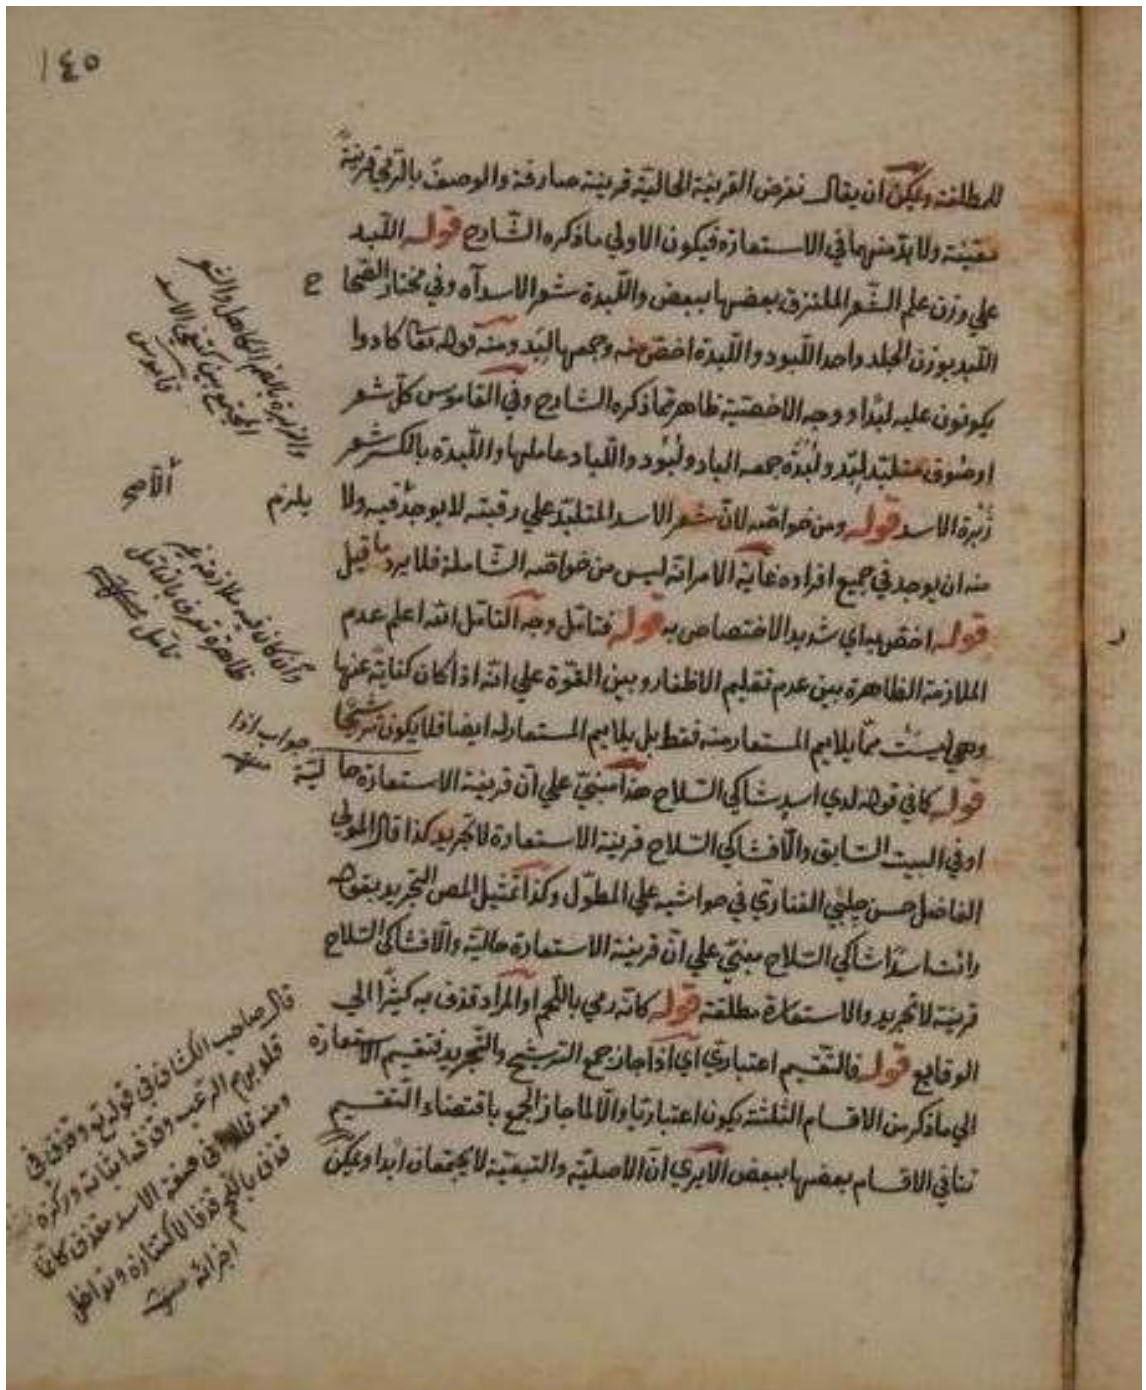 ١٤٥
للمطلقة ويمكن ان يقال نفرض القرينة الحالية قرينة صارفة والوصف بالترمي قرينة
معينة ولا بد منهما في الاستعارة فيكون الاولي ما ذكره الشارح قوله اللبد
علي وزن علم الشعر الملتزق بعضها ببعض واللبدة شعر الاسد آه وفي مختار الصحا
ح
اللبد بوزن الجلد واحد اللبود واللبدة اخص منه وجمعها لبد ومنه قوله تعا كادوا
يكونون عليه لبدا ووجه الاخصية ظاهر مما ذكره الشارح وفي القاموس كل شعر
او صوف متلبد لبد ولبدة جمعه الباد ولبود واللباد عاملها واللبدة بالكسر شعر
زبرة الاسد قوله ومن خواصه لان شعر الاسد المتلبد علي رقبته لا يوجد فيه ولا
يلزم
منه ان يوجد في جميع افراده غاية الامر انه ليس من خواصه الشاملة فلا يرد ما قيل
قوله اخص به اي شديد الاختصاص به قوله فتامل وجه التامل انه اعلم عدم
الملازمة الظاهرة بين عدم تقليم الاظفار وبين القوة علي انه اذا كان كناية عنها
وهي ليست مما يلايم المستعار منه فقط بل يلايم المستعار له ايضا فلا يكون ترشيحا
قوله كما في قوله لدي اسد شاكي السلاح هذا مبني علي ان قرينة الاستعارة حا
لية
او في البيت السابق والا فشاكي السلاح قرينة الاستعارة لا تجريد كذا قال المولي
الفاضل حسن چلبي الفناري في حواشيه علي المطول وكذا تمثيل المص التجريد بقوله
رايت اسدا شاكي السلاح مبني علي ان قرينة الاستعارة حالية والا فشاكي السلاح
قرينة لا تجريد والاستعارة مطلقة قوله كانه رمي باللحم او المراد قذف به كثيرا الي
الوقايع قوله فالتقسيم اعتباري اي اذا جاز جمع الترشيح والتجريد فتقسيم الاستعارة
الي ما ذكر من الاقسام الثلثة يكون اعتباريا والا لما جاز الجمع باقتضاء التقسيم
تنافي الاقسام بعضها ببعض الا يري ان الاصلية والتبعية لا يجتمعان ابدا ويمكن
والزبرة بالضم الكاهل والشعر
المجتمع بين كتفي الاسد
قاموس
الاصح
وان كان فيه ملازمة غير
ظاهرة تعرف بالتامل
تامل منه
جواب اذا
منه
قال صاحب الكشاف في قوله تع وقذف في
قلوبهم الرعب وقذف اثباته وركزه
ومنه قالوا في صفة الاسد مقذف كانما
قذف باللحم قذفا لاكتنازه وتداخل
اجزائه منه